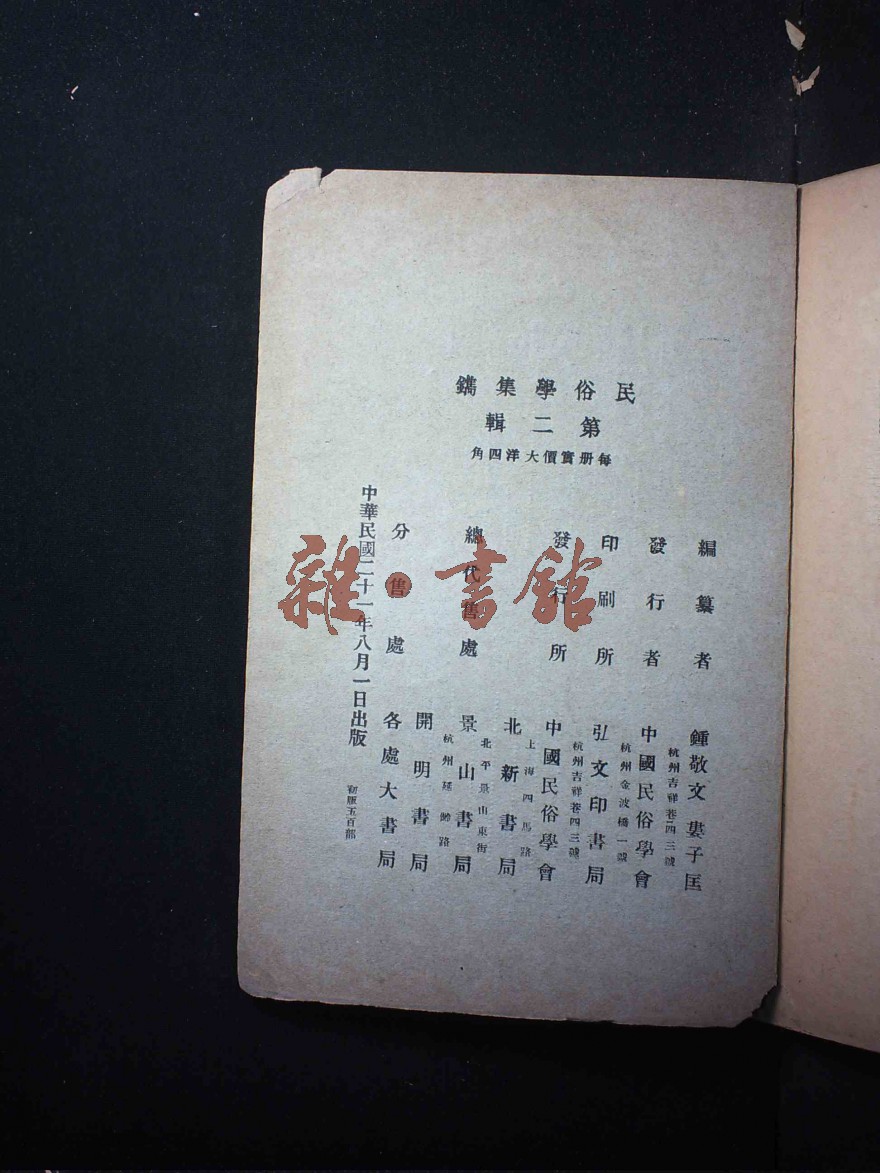 民俗學集鐫
第二輯
每册實價大洋四角
編纂者 鍾敬文 婁子匡
杭州吉祥巷四三號
發行者 中國民俗學會
杭州金波橋一號
印刷所 弘文印書局
杭州吉祥巷四三號
發行所 中國民俗學會
上海四馬路
北新書局
北平景山東街
總代售處 景山書局
杭州延齡路
開明書局
分售處 各處大書局
中華民國二十一年八月一日出版
初版五百部
雜·書館